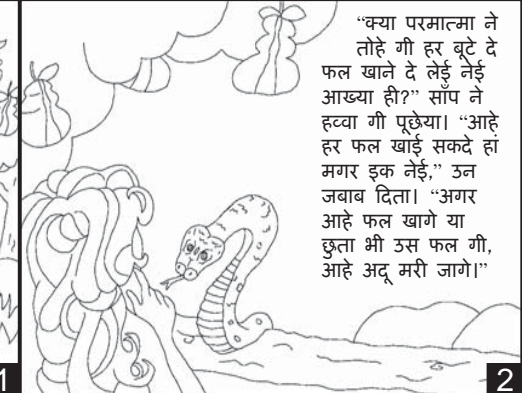 “क्या परमात्मा ने
तोहे गी हर बूटे दे
फल खाने दे लेई नेई
आख्या ही?” साँप ने
हव्वा गी पूछेया। “आहे
हर फल खाई सकदे हां
मगर इक नेई,” उन
जबाब दिता। “अगर
आहे फल खागे या
छुता भी उस फल गी,
आहे अदू मरी जागे।”
1
2